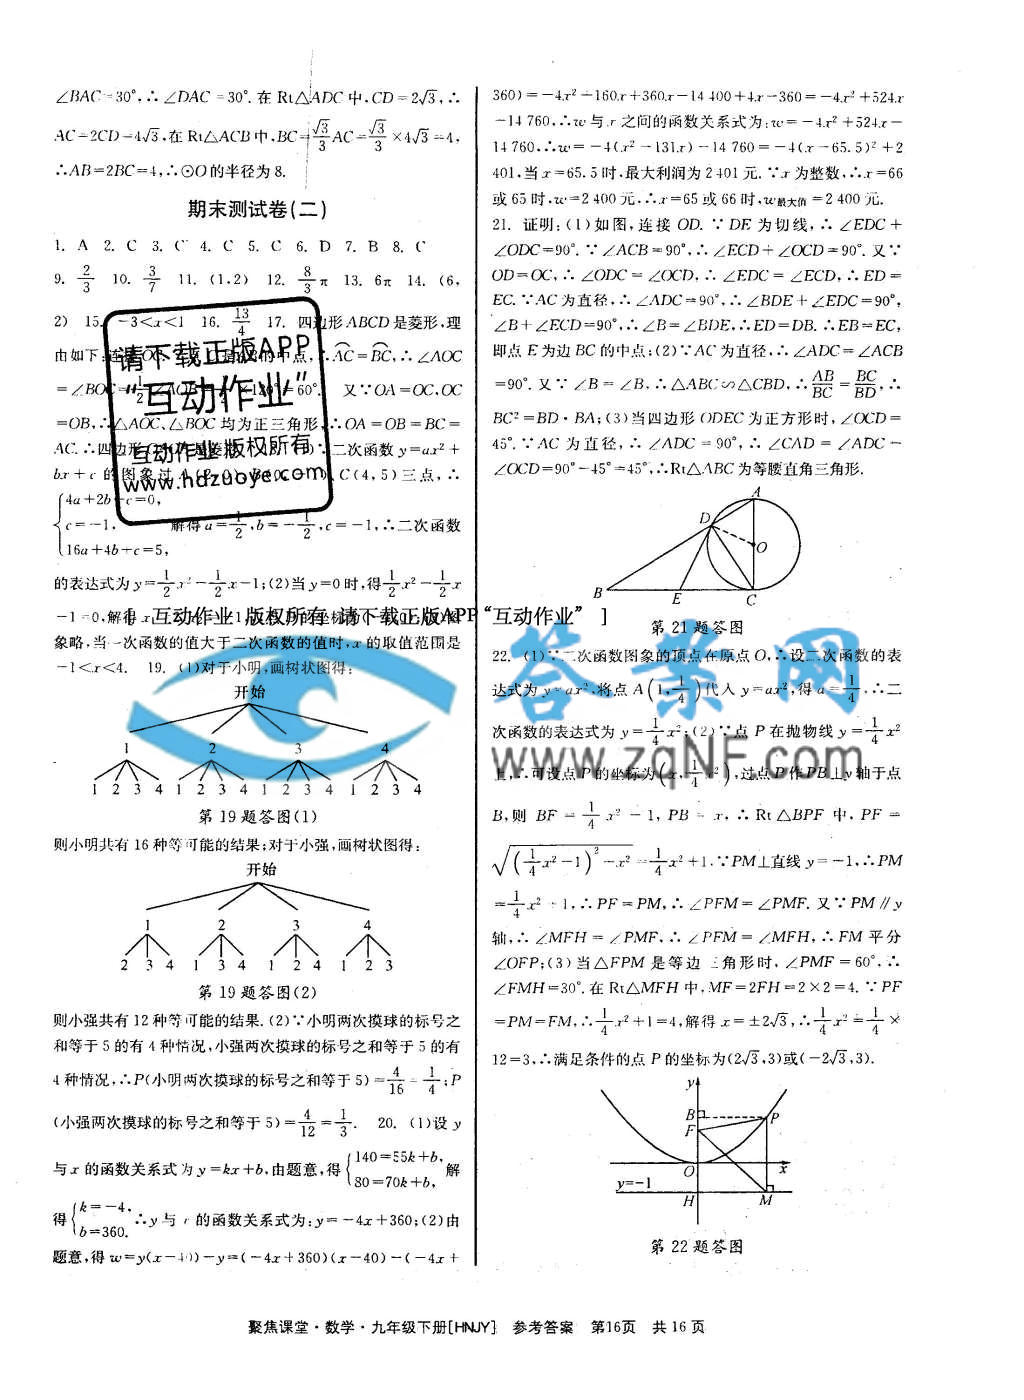 ∠BAC=30°,∴∠DAC=30°.在Rt△ADC中,CD=2√3,∴
AC=2CD=4√3,在Rt△ACB中,BC=√3/3 AC=√3/3×4√3=4,
∴AB=2BC=4,∴⊙O的半径为8.
期末测试卷(二)
1. A 2. C 3. C 4. C 5. C 6. D 7. B 8. C
9. 2/3 10. 3/7 11. (1,2) 12. 8/3π 13. 6π 14. (6,
2) 15. -3<x<1 16. 13/4 17. 四边形ABCD是菱形,理
由如下:连接OC
的中点,∴AC=BC,∴∠AOC
=∠BOC=1/2∠AOB ×120°=60°. 又∵OA=OC,OC
=OB,∴△AOC、△BOC均为正三角形,∴OA=OB=BC=
AC.∴四边形 是菱形 ∵二次函数y=ax²+
bx+c的图象过A(2,0) C(4,5)三点,∴
{4a+2b+c=0,
c=-1,
16a+4b+c=5,
解得a=1/2,b=-1/2,c=-1,∴二次函数
的表达式为y=1/2x²-1/2x-1;(2)当y=0时,得1/2x²-1/2x
-1=0,解得
象略,当一次函数的值大于二次函数的值时,x的取值范围是
-1<x<4. 19. (1)对于小明,画树状图得:
开始
1 2 3 4
1 2 3 4 1 2 3 4 1 2 3 4 1 2 3 4
第19题答图(1)
则小明共有16种等可能的结果;对于小强,画树状图得:
开始
1 2 3 4
2 3 4 1 3 4 1 2 4 1 2 3
第19题答图(2)
则小强共有12种等可能的结果.(2)∵小明两次摸球的标号之
和等于5的有4种情况,小强两次摸球的标号之和等于5的有
4种情况,∴P(小明两次摸球的标号之和等于5)=4/16=1/4;P
(小强两次摸球的标号之和等于5)=4/12=1/3. 20. (1)设y
与x的函数关系式为y=kx+b,由题意,得{140=55k+b, 80=70k+b, 解
得{k=-4, b=360. ∴y与x的函数关系式为:y=-4x+360;(2)由
题意,得w=y(x-40)-y=(-4x+360)(x-40)-(-4x+
360)=-4x²+160x+360x-14 400+4x-360=-4x²+524x
-14 760,∴w与x之间的函数关系式为:w=-4x²+524x-
14 760,∴w=-4(x²-131x)-14 760=-4(x-65.5)²+2
401,当x=65.5时,最大利润为2 401元.∵x为整数,∴x=66
或65时,w=2 400元,∴x=65或66时,w最大值=2 400元.
21. 证明:(1)如图,连接OD.∵DE为切线,∴∠EDC+
∠ODC=90°.∵∠ACB=90°,∴∠ECD+∠OCD=90°.又∵
OD=OC,∴∠ODC=∠OCD,∴∠EDC=∠ECD,∴ED=
EC.∵AC为直径,∴∠ADC=90°,∴∠BDE+∠EDC=90°,
∠B+∠ECD=90°,∴∠B=∠BDE,∴ED=DB.∴EB=EC,
即点E为边BC的中点;(2)∵AC为直径,∴∠ADC=∠ACB
=90°.又∵∠B=∠B,∴△ABC∽△CBD,∴AB/BC=BC/BD,∴
BC²=BD·BA;(3)当四边形ODEC为正方形时,∠OCD=
45°.∵AC为直径,∴∠ADC=90°,∴∠CAD=∠ADC-
∠OCD=90°-45°=45°,∴Rt△ABC为等腰直角三角形.
A
D
O
B E C
第21题答图
22. (1)∵二次函数图象的顶点在原点O,∴设二次函数的表
达式为y=ax²,将点A(1,1/4)代入y=ax²,得a=1/4,∴二
次函数的表达式为y=1/4x²;(2)∵点P在抛物线y=1/4x²
上,∴可设点P的坐标为(x,1/4x²),过点P作PB⊥y轴于点
B,则BF=1/4x²-1,PB=x,∴Rt△BPF中,PF=
√((1/4x²-1)²-x²)=1/4x²+1.∵PM⊥直线y=-1,∴PM
=1/4x²+1,∴PF=PM,∴∠PFM=∠PMF.又∵PM∥y
轴,∴∠MFH=∠PMF,∴∠PFM=∠MFH,∴FM平分
∠OFP;(3)当△FPM是等边三角形时,∠PMF=60°,∴
∠FMH=30°.在Rt△MFH中,MF=2FH=2×2=4.∵PF
=PM=FM,∴1/4x²+1=4,解得x=±2√3,∴1/4x²=1/4×
12=3,∴满足条件的点P的坐标为(2√3,3)或(-2√3,3).
y
B P
F
O x
y=-1
H M
第22题答图
聚焦课堂·数学·九年级下册[HNJY] 参考答案 第16页 共16页
请下载正版APP
“互动作业”
互动作业版权所有
www.hdzuoye.com
[ 互动作业 版权所有 请下载正版APP“互动作业” ]
答案网
www.zqNF.com